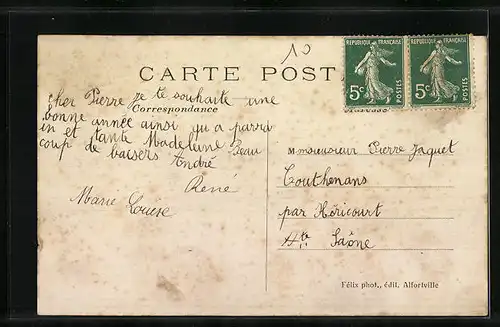 10
REPUBLIQUE FRANÇAISE REPUBLIQUE FRANÇAISE
5c POSTES 5c POSTES
CARTE POST
cher Pierre je te souhaite une
Correspondance
bonne année ainsi qu a parra
in et tante Madeleine Beau
coup de baisers André
René
Marie Louise
M monsieusieur Pierre Jaquet
Couthenans
par Héricourt
Hte Saône
Félix phot., édit. Alfortville